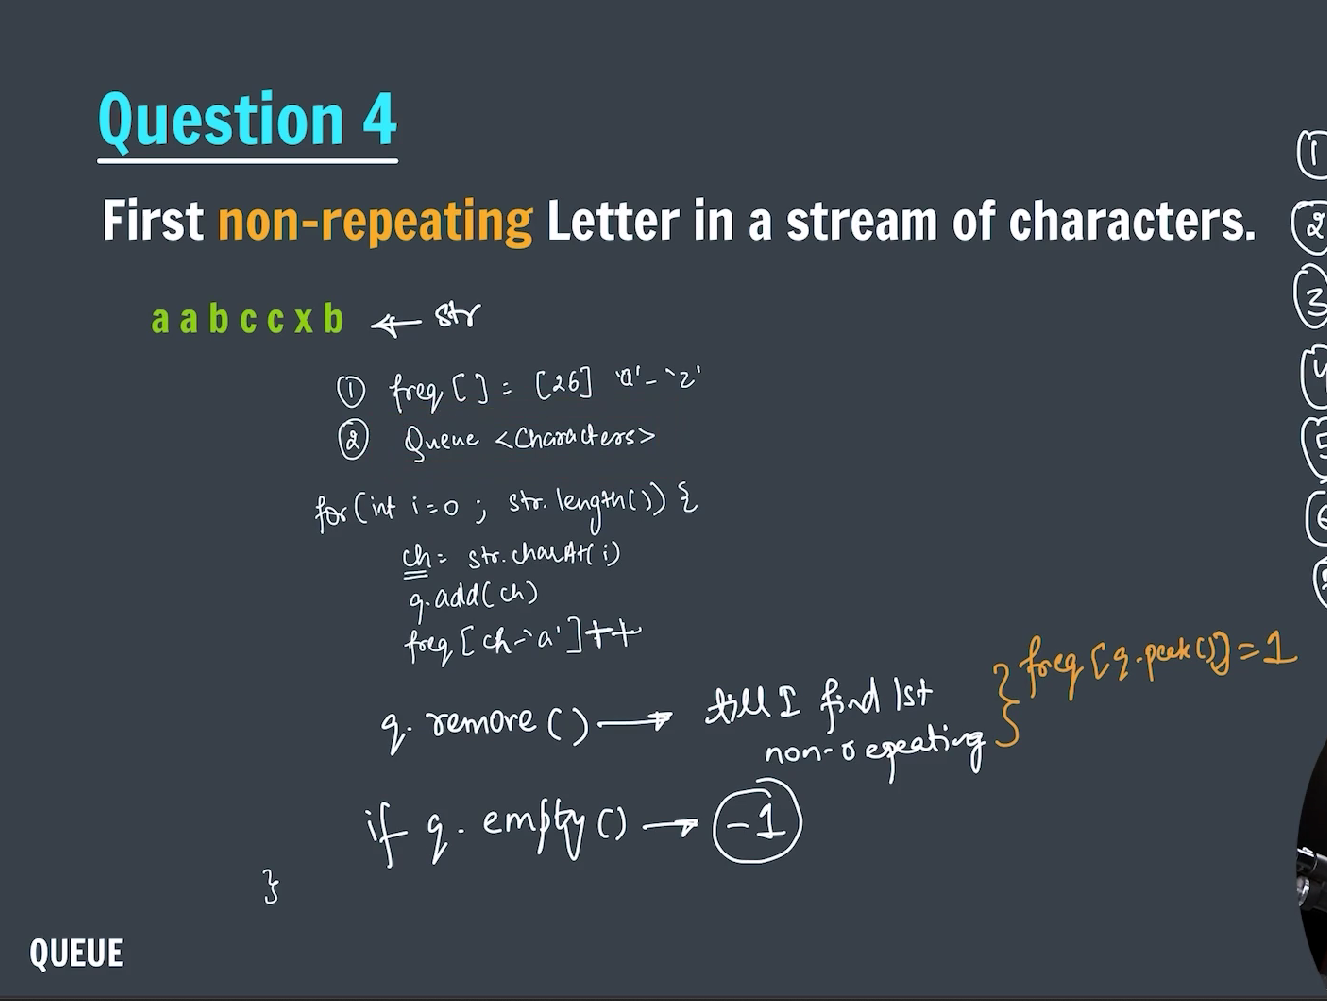 Question 4
First non-repeating Letter in a stream of characters.
a a b c c x b ← str
① freq [ ] = [26] 'a' - 'z'
② Queue <Characters>
for (int i=0 ; str. length()) {
ch = str. charAt( i )
q. add( ch )
freq [ ch-'a' ]++
q. remove ( ) → till I find 1st
non-repeating } freq [q.peek()] = 1
if q. empty () → -1
}
QUEUE
①
②
③
④
⑤